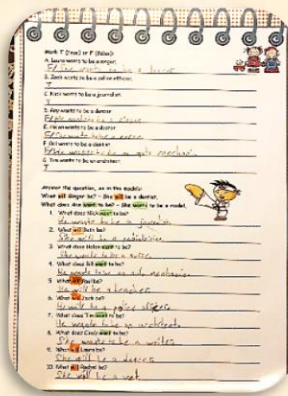 Mark T (true) or F (false):
A. Laura wants to be a singer.
B. Zack wants to be a police officer.
T
C. Nick wants to be a journalist.
T
D. Amy wants to be a dancer
E. Helen wants to be a doctor
F. Bill wants to be a dentist
G. Tim wants to be an architect
T
Answer the question, as in the models:
What will Ginger be? - She will be a dentist.
What does Ann want to be? - She wants to be a model.
1. What does Nick want to be?
He wants to be a
2. What will Beth be?
She will be a
3. What does Helen want to be?
She wants to be a nurse
4. What does Bill want to be?
He wants to be
5. What will Paul be?
He will be a teacher
6. What will Zack be?
He will be a police officer
7. What does Tim want to be?
He wants to be an architect
8. What does Cindy want to be?
She wants to be a writer
9. What will Laura be?
She will be a dancer
10. What will Rachel be?
She will be a vet